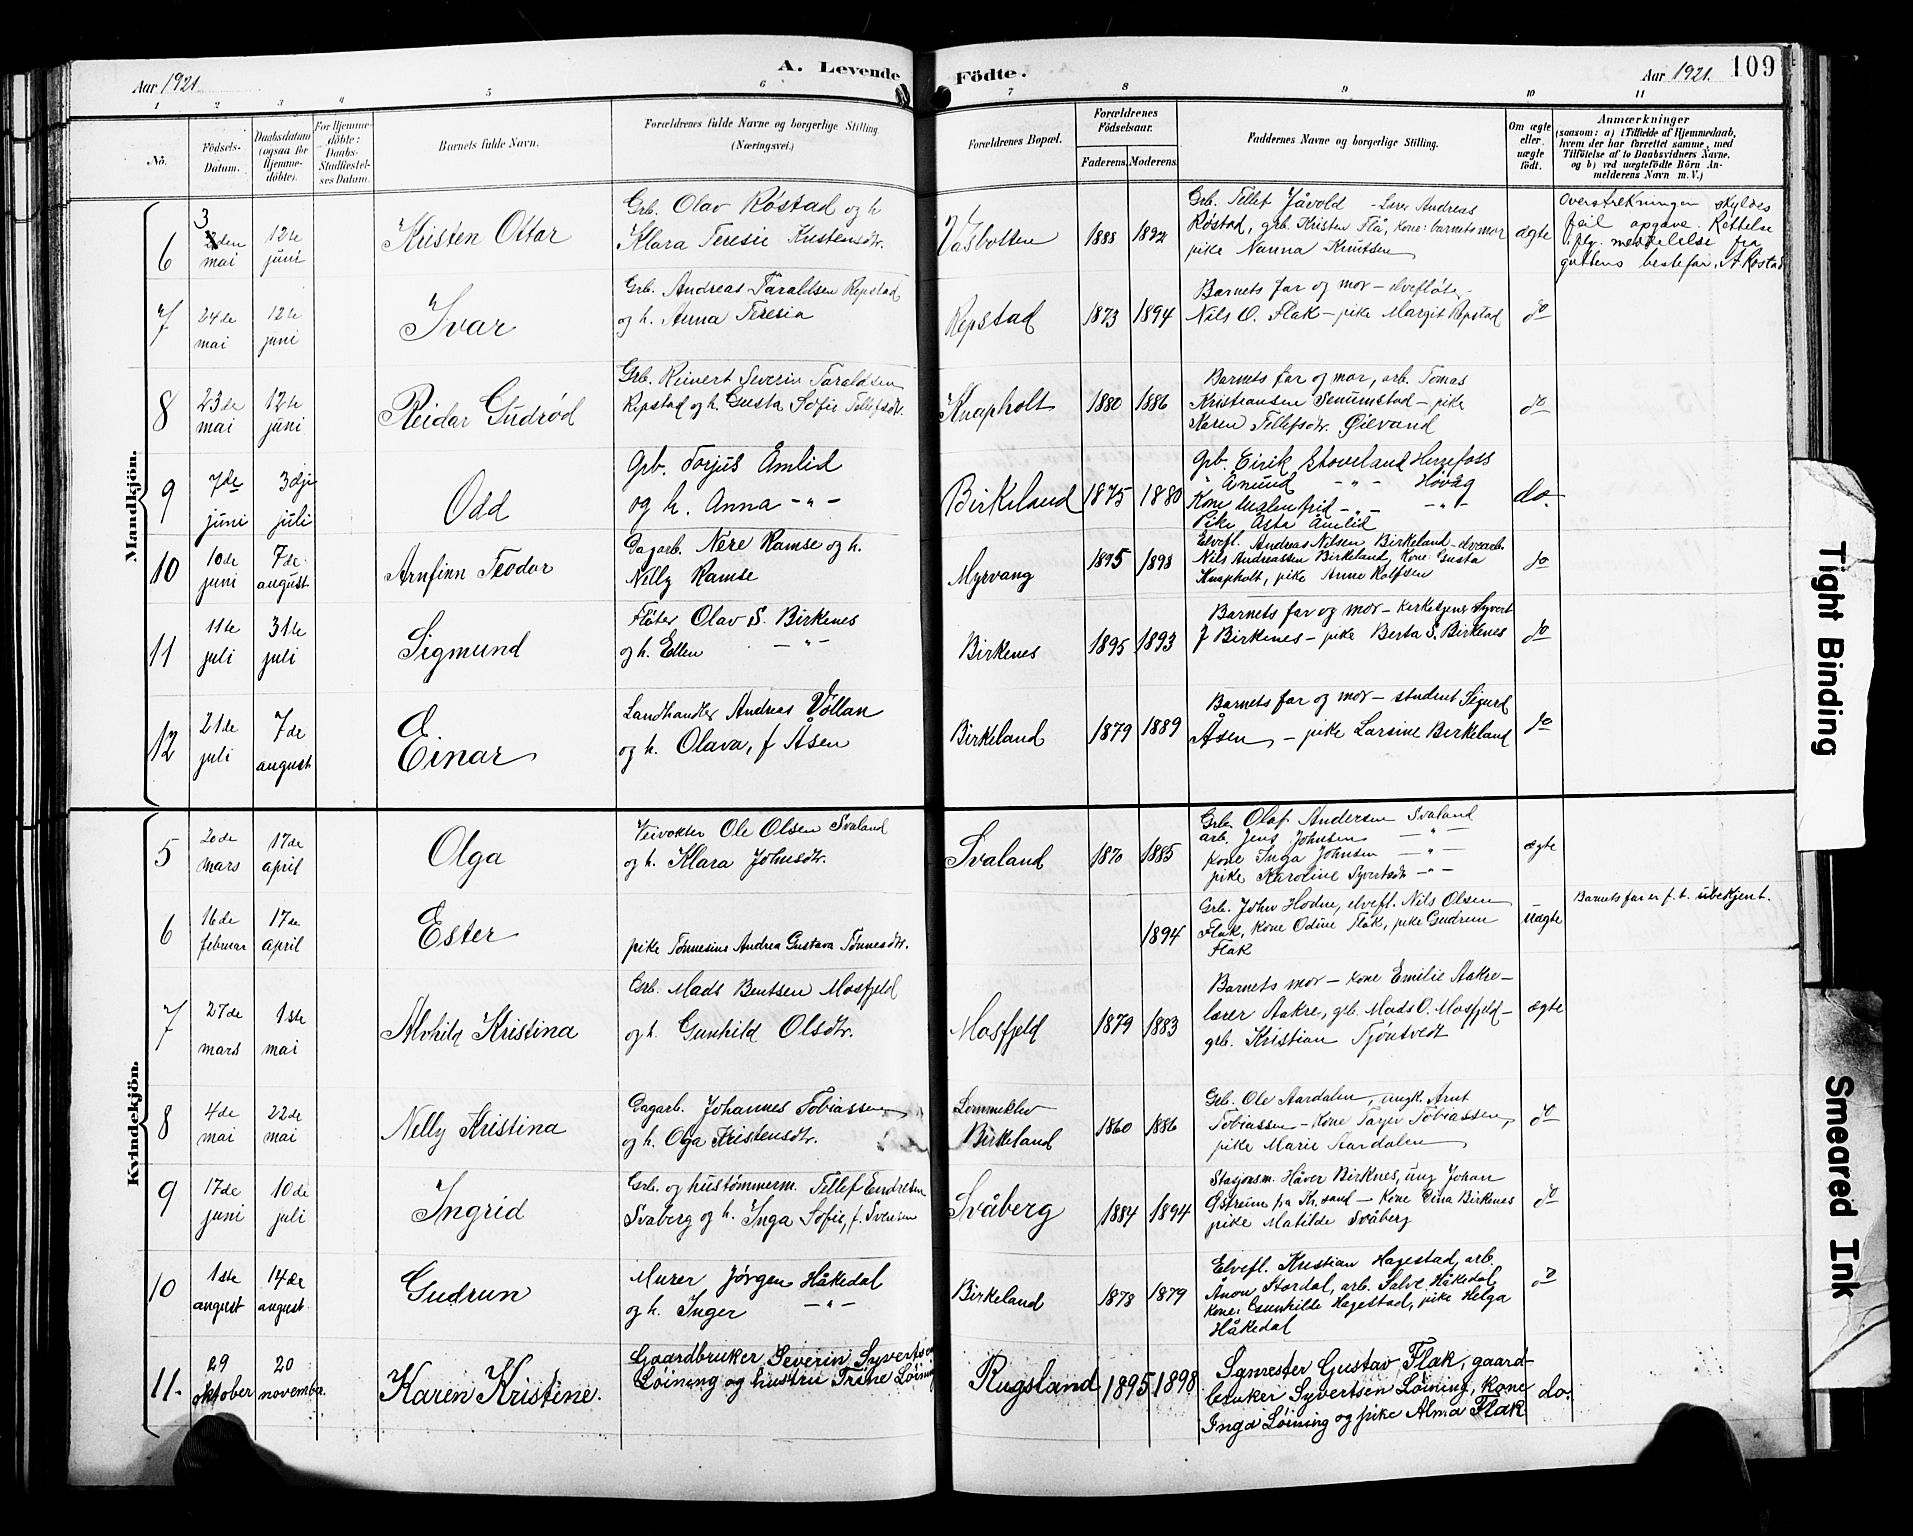 Aar 1921.
A. Levende
Födte.
Aar 1921.
109
1 2 3 4 5 6 7 8 9 10 11
No.
Födsels-
Datum.
Daabsdatum
(ogsaa for
Hjemme-
döbte).
For Hjemme-
döbte:
Daabs-
Stadfæstel-
ses Datum.
Barnets fulde Navn.
Forældrenes fulde Navne og borgerlige Stilling
(Næringsvei.)
Forældrenes Bopæl.
Forældrenes
Födselsaar.
Faderens. Moderens.
Faddernes Navne og borgerlige Stilling.
Om ægte
eller
uægte
födt.
Anmærkninger
(saasom: a) i Tilfælde af Hjemmedaab,
hvem der har forrettet samme, med
Tilföielse af to Daabsvidners Navne,
og b) ved uægtefödte Börn An-
melderens Navn m. V.)
Mandkjön.
6
3
den
mai
12te
juni
Kristen Ottar
Grb. Olav Røstad og h
Klara Teresie Kristensdtr.
Vasbotten
1888 1892
Grb. Tellef Jåvold - Lærer Andreas
Røstad, grb. Kristen Flå, kone: barnets mor
pike Nanna Knutsen
ægte
Overstrekningen skyldes
feil opgave. Rettelse
flg. meddelelse fra
guttens bestefar, A Røstad
7
24de
mai
12te
juni
Ivar
Grb. Andreas Taraldsen Repstad
og h. Anna Teresia
Repstad
1873 1894
Barnets far og mor - elvefløte-
Nils O. Flak - pike Margit Repstad
do
8
23de
mai
12te
juni
Reidar Gudrød
Grb. Reinert Severin Taraldsen
Repstad og h. Gusta Sofie Tellefsdtr.
Knapholt
1880 1886
Barnets far og mor, arb. Tomas
Kristiansen Senumstad - pike
Karen Tellefsdtr. Øievand
do
9
7de
juni
3dje
juli
Odd
Grb. Torjus Åmlid
og h. Anna - " -
Birkeland
1875 1880
Grb. Eirik Stoveland Herefoss
" Ånund - " - Høvåg
Kone - " - - " -
Pike Asta Åmlid
do.
10
10de
juni
7de
august
Arnfinn Teodor
Dagarb. Nere Ramse og h.
Nelly Ramse
Myrvang
1895 1898
Elvefl. Andreas Nilsen Birkeland - elvearb.
Nils Andreassen Birkeland, Kone: Gusta
Knapholt, pike Anne Rolfsen
do
11
11te
juli
31te
juli
Sigmund
Fløter Olav S. Birkenes
og h. Ellen - " -
Birkenes
1895 1893
Barnets far og mor - kirketjener Syvert
J Birkenes - pike Berta S. Birkenes
do
12
21de
juli
7de
august
Einar
Landhandler Andreas Vollan
og h. Olava, f Åsen
Birkeland
1879 1889
Barnets far og mor - student Sigurd
Åsen - pike Larsine Birkeland
do
Kvindekjön.
5
20de
mars
17de
april
Olga
Veivokter Ole Olsen Svaland
og h. Klara Johnsdtr.
Svaland
1870 1885
Grb. Olaf Andersen Svaland
arb. Jens Johnsen - " -
kone Inga Johnsen - " -
pike Karoline Syvertsdtr - " -
ægte
6
16de
februar
17de
april
Ester
pike Tønnesine Andrea Gustava Tønnesdtr.
1894
Grb. John Hodne, elvefl. Nils Olsen
Flak, kone Odine Flak, pike Gudrun
Flak
uægte
Barnets far er f. t. ubekjent.
7
27de
mars
1ste
mai
Alvhild Kristina
Grb. Mads Bentsen Mosfjeld
og h. Gunhild Olsdtr.
Mosfjeld
1879 1883
Barnets mor - kone Emilie Aakre -
lærer Aakre, grb. Mads O. Mosfjeld -
grb. Kristian Tjøntvedt
ægte
8
4de
mai
22de
mai
Nelly Kristina
Dagarb. Johannes Tobiassen
og h. Oga Kristensdtr.
Lommeklev
Birkeland
1860 1886
Grb. Ole Aardalen, ungk. Arnt
Tobiassen - Kone Tarjer Tobiassen,
pike Marie Aardalen
do
9
17de
juni
10de
juli
Ingrid
Grb. og hustømmerm. Tellef Endresen
Svaberg og h. Inga Sofie, f. Svensen
Svåberg
1884 1894
Stasjonsm. Håver Birknes, ung Johan
Østreim fra Kr.sand - Kone Dina Birkenes
pike Matilde Svåberg
do
10
1ste
august
14de
august
Gudrun
Murer Jørgen Håkedal
og h. Inger - " -
Birkeland
1878 1879
Elvefl. Kristian Hagestad, arb.
Ånon Stordal, arb. Salve Håkedal,
kone: Gunhilde Hagestad, pike Helga
Håkedal
do
11.
29
oktober
20
november.
Karen Kristine.
Gaardbruker Severin Syvertsen
Løining og hustru Trine Løining
Rugsland
1895 1898
Sanvester Gustav Flak, gaard-
bruker Syvertsen Løining, kone
Inga Løining og pike Alma Flak
do.
Tight Binding
Smeared Ink